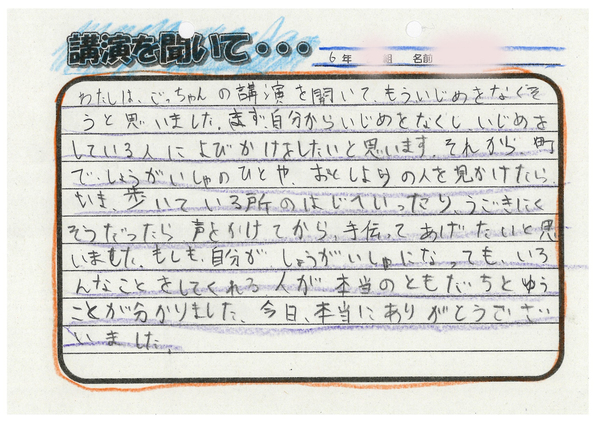 講演を聞いて・・・
6年 組 名前
わたしは、ごっちゃんの講演を聞いて、もういじめをなくそ
うと思いました。まず自分からいじめをなくし、いじめを
している人によびかけをしたいと思います。それから、町
で、しょうがいしゃのひとや、おとしよりの人を見かけたら
歩いている所のはじへいったり、うごきにく
そうだったら声をかけてから、手伝ってあげたいと思
いました。もしも、自分が、しょうがいしゃになっても、いろ
んなことをしてくれる人が本当のともだちとゆう
ことが分かりました。今日、本当にありがとうござい
いました。